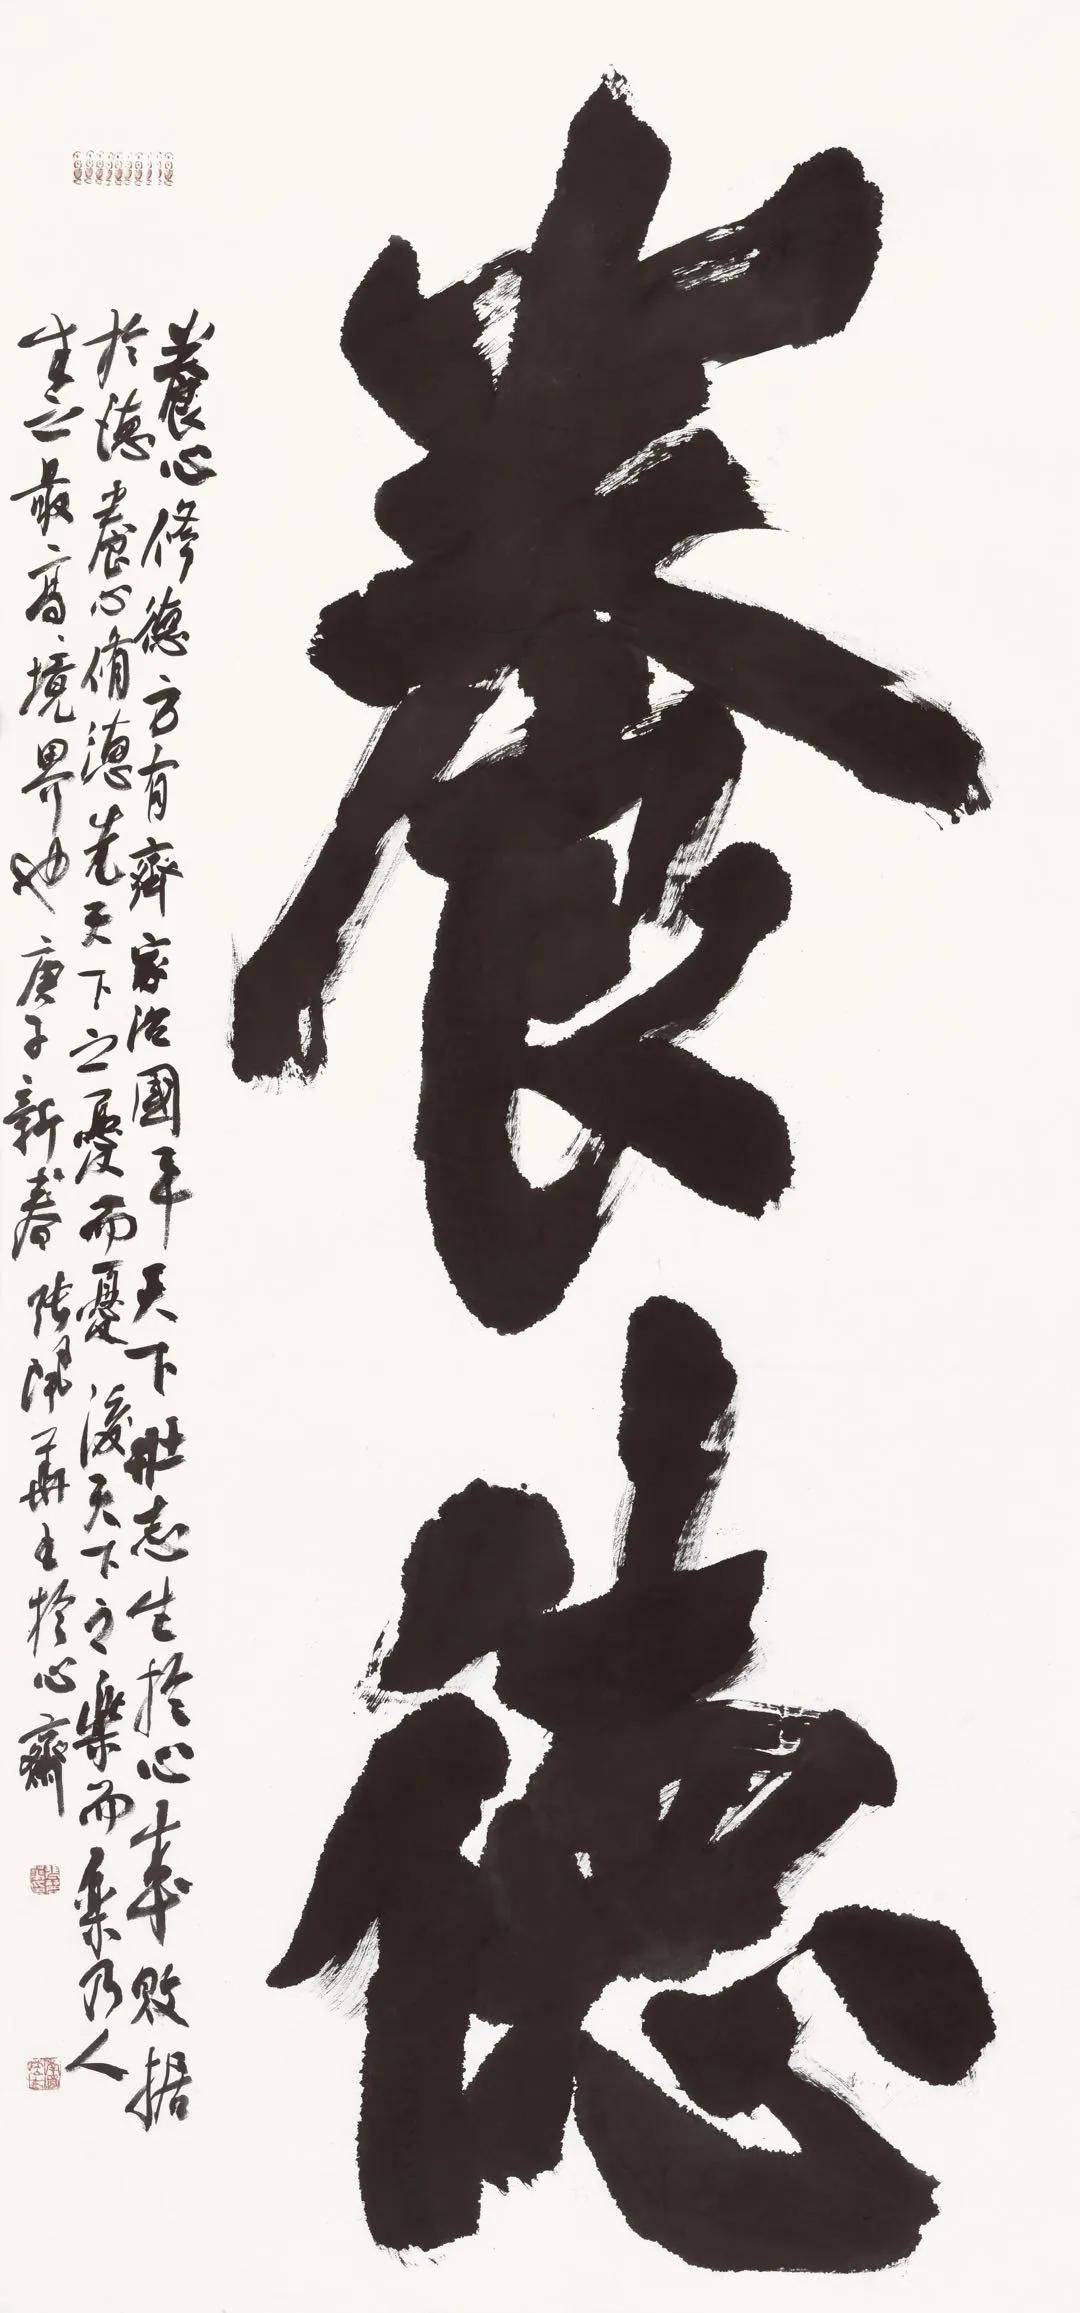 養德
養心修德方有齊家治國平天下壯志生於心事敗据
於德養心脩德先天下之憂而憂後天下之樂而樂乃人
生之最高境界也庚子新春張 華 於心齋